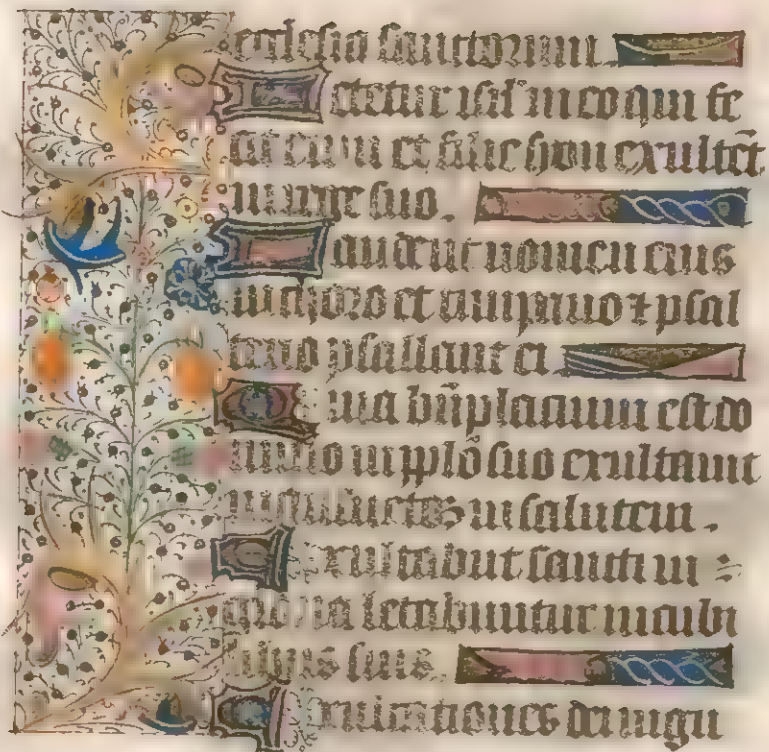 ecclesia sanctorum.
Letetur isrl' in eo qui fe
cit eum et filie syon exultēt
in rege suo.
Laudent nomen eius
in choro et timpano ⁊ psal
terio psallant ei
Quia bn̄placitum est do
mino in pplō suo
in salutem.
Exultabunt sancti in
gloria letabuntur in cubi
libus suis.
Exultationes dei in gutt